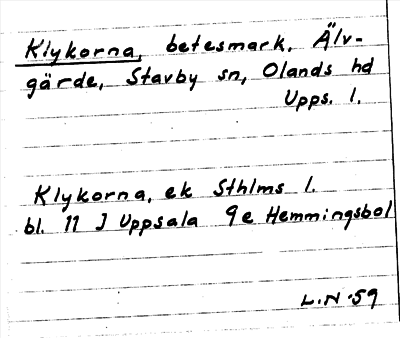 Klykorna, betesmark, Älv-
gärde, Stavby sn, Olands hd
Upps. l.
Klykorna, ek Sthlms l.
bl. 11 J Uppsala 9e Hemmingsbol
L.N. 59